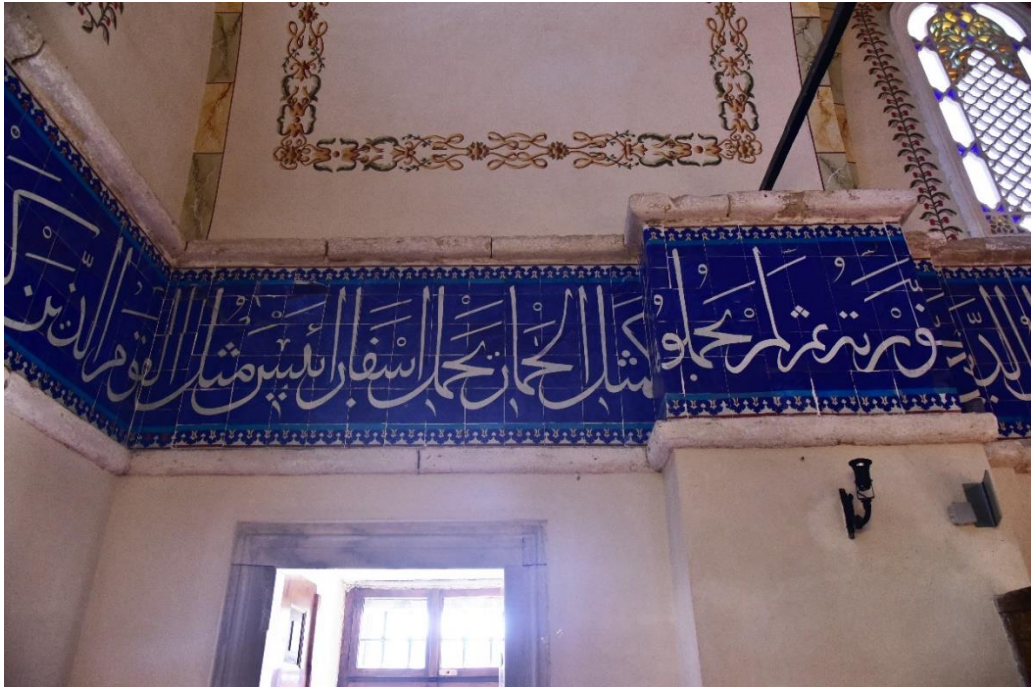 الذين التورية ثم لم يحملو كمثل الحمار يحمل اسفارا بئس مثل القوم الذين